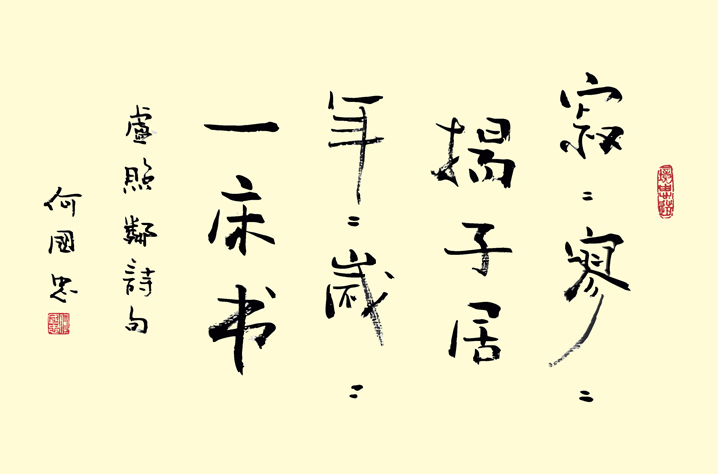 寂〻寥〻
揚子居
年〻歲〻
一床书
盧照鄰詩句
何國忠